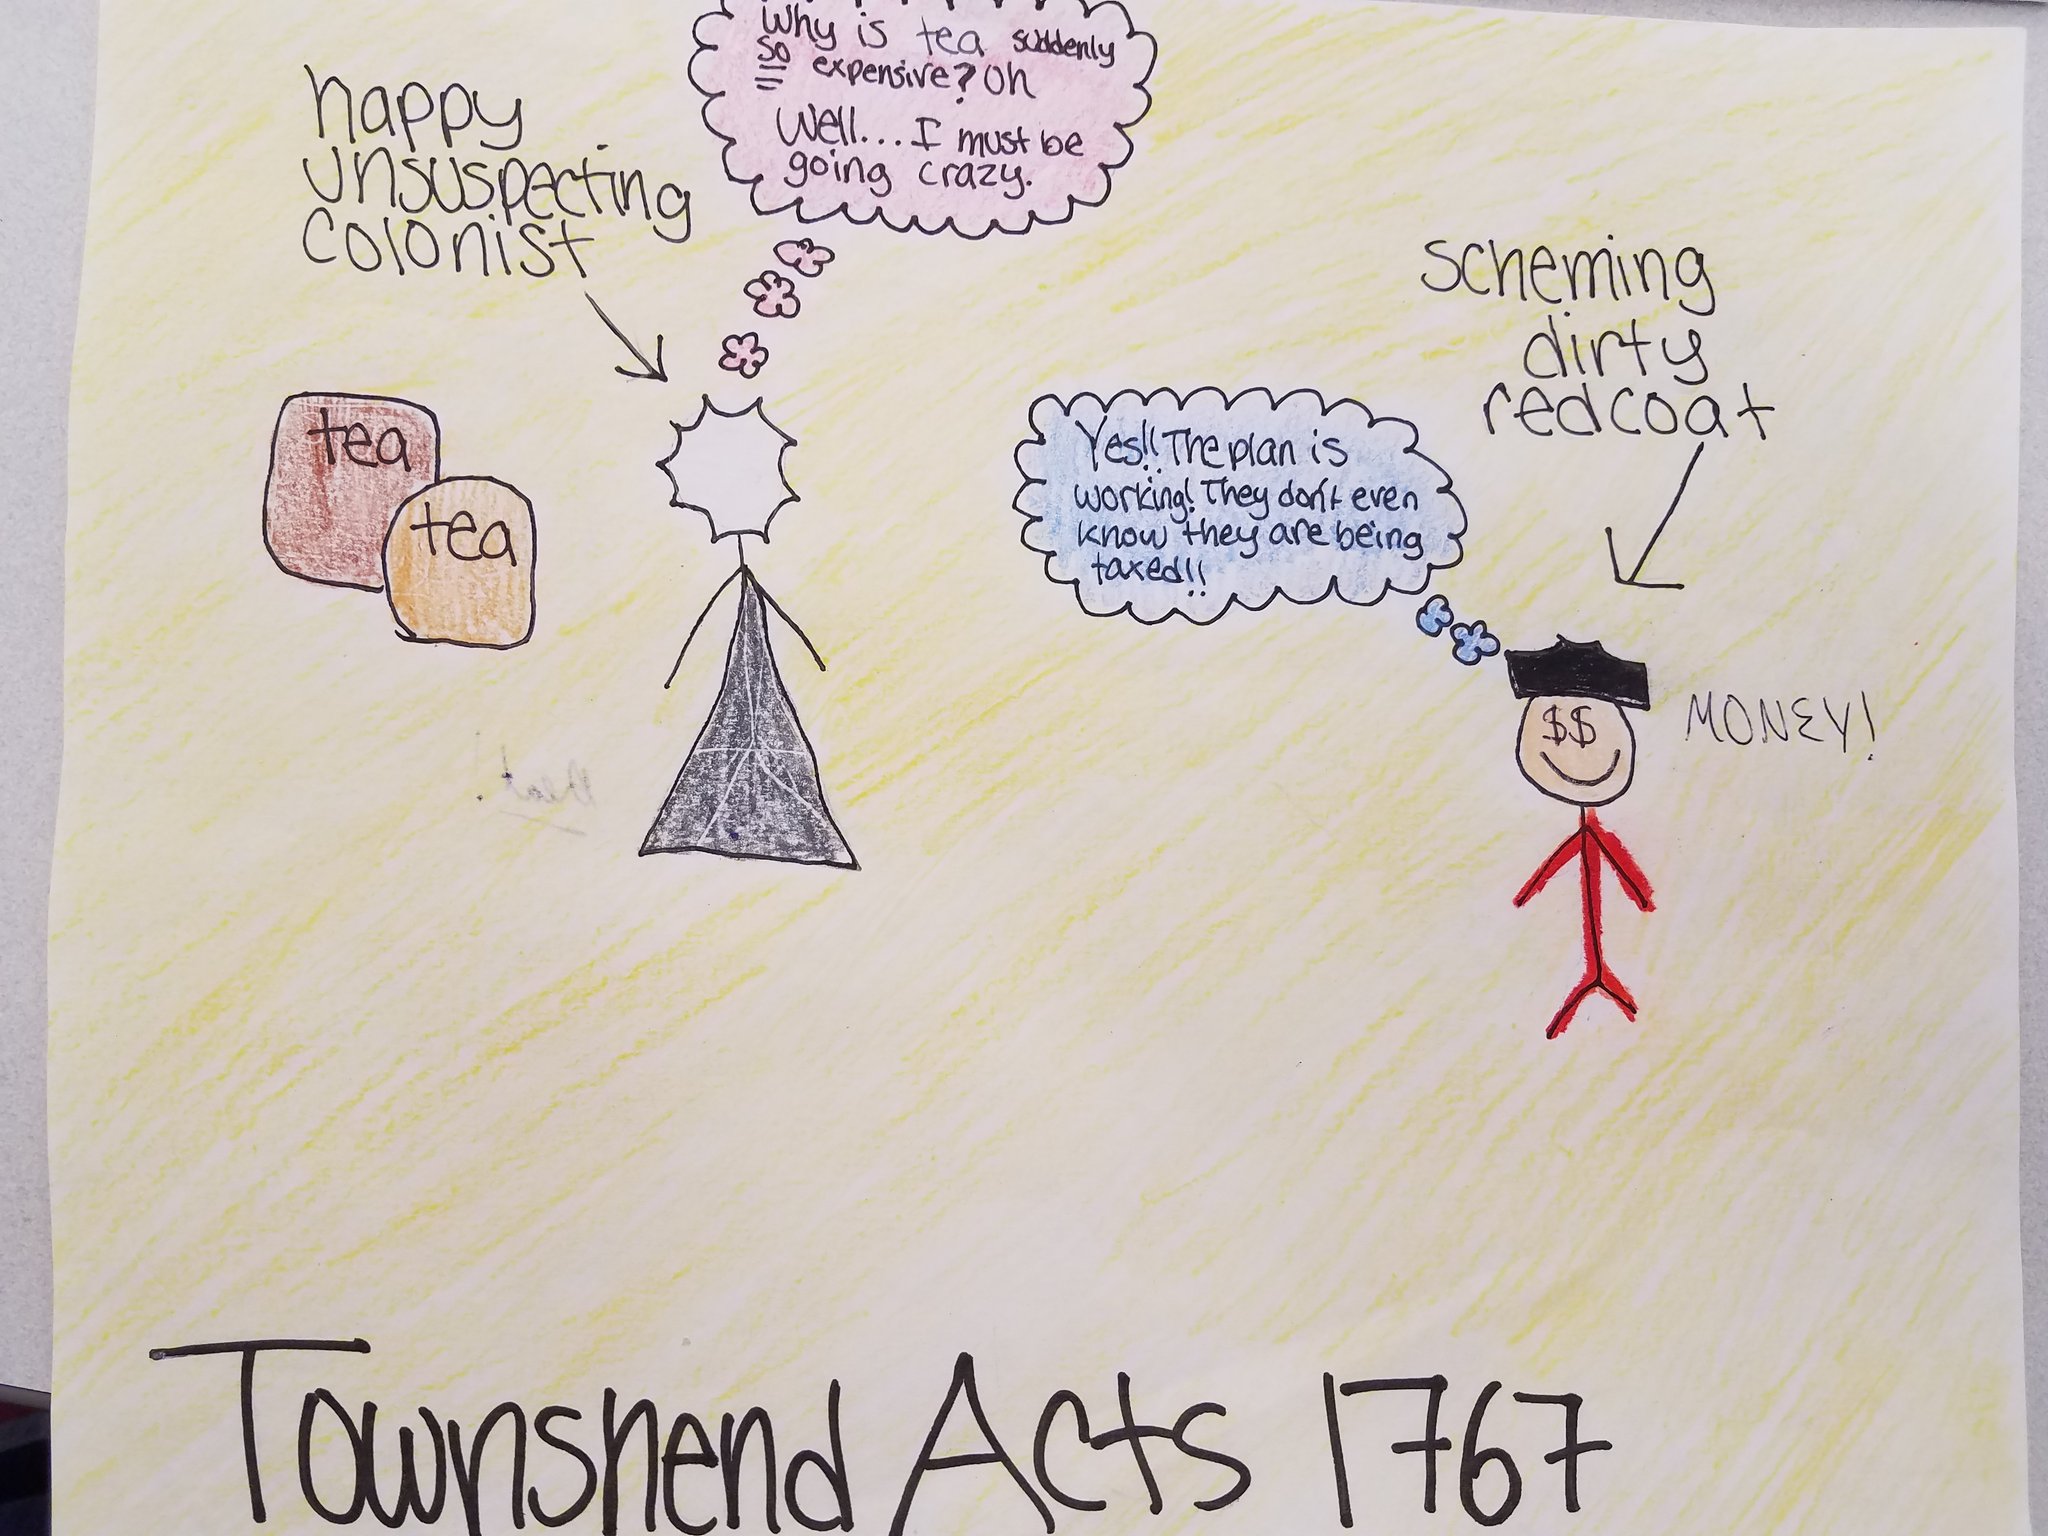 happy
unsuspecting
colonist
Why is tea suddenly
so expensive? Oh
Well... I must be
going crazy.
scheming
dirty
redcoat
tea
tea
Yes!! The plan is
working! They don't even
know they are being
taxed!!
$$
MONEY!
Townshend Acts 1767